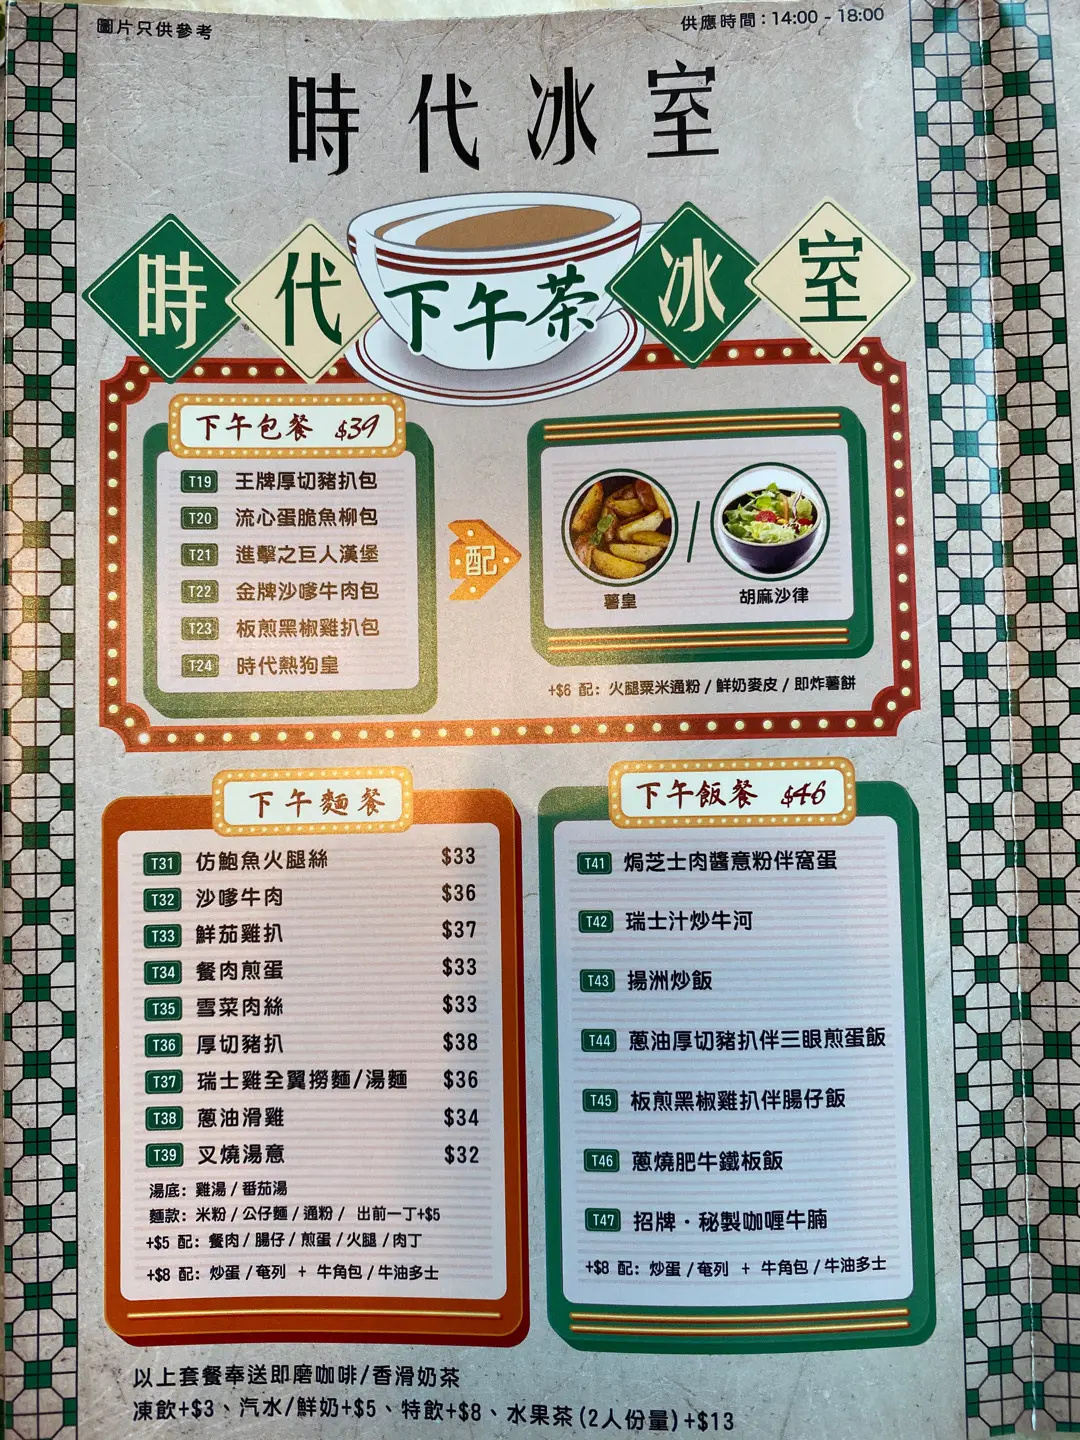 圖片只供參考
供應時間：14:00 - 18:00
時代冰室
時代下午茶冰室
下午包餐 $39
T19 王牌厚切豬扒包
T20 流心蛋脆魚柳包
T21 進擊之巨人漢堡
T22 金牌沙嗲牛肉包
T23 板煎黑椒雞扒包
T24 時代熱狗皇
配
薯皇 / 胡麻沙律
+$6 配：火腿粟米通粉 / 鮮奶麥皮 / 即炸薯餅
下午麵餐
T31 仿鮑魚火腿絲 $33
T32 沙嗲牛肉 $36
T33 鮮茄雞扒 $37
T34 餐肉煎蛋 $33
T35 雪菜肉絲 $33
T36 厚切豬扒 $38
T37 瑞士雞全翼撈麵/湯麵 $36
T38 蔥油滑雞 $34
T39 叉燒湯意 $32
湯底：雞湯 / 番茄湯
麵款：米粉 / 公仔麵 / 通粉 / 出前一丁+$5
+$5 配：餐肉 / 腸仔 / 煎蛋 / 火腿 / 肉丁
+$8 配：炒蛋 / 奄列 + 牛角包 / 牛油多士
下午飯餐 $46
T41 焗芝士肉醬意粉伴窩蛋
T42 瑞士汁炒牛河
T43 揚洲炒飯
T44 蔥油厚切豬扒伴三眼煎蛋飯
T45 板煎黑椒雞扒伴腸仔飯
T46 蔥燒肥牛鐵板飯
T47 招牌・秘製咖喱牛腩
+$8 配：炒蛋 / 奄列 + 牛角包 / 牛油多士
以上套餐奉送即磨咖啡/香滑奶茶
凍飲+$3、汽水/鮮奶+$5、特飲+$8、水果茶(2人份量)+$13